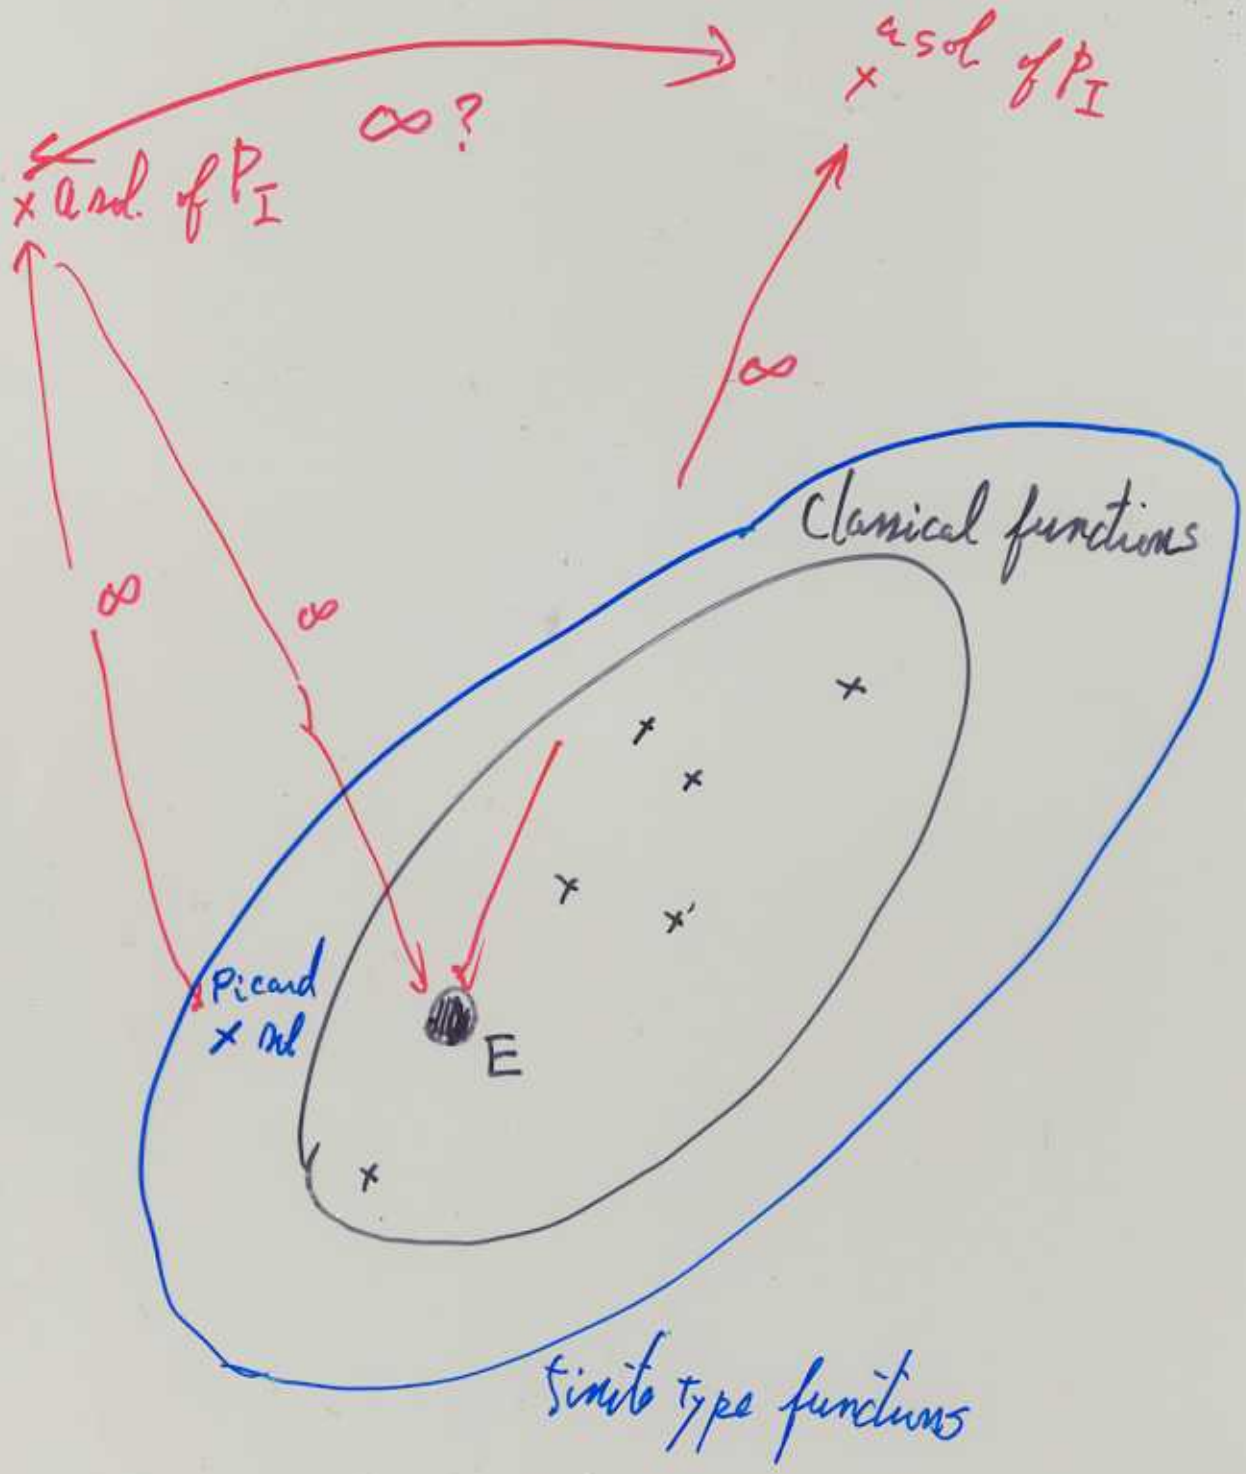 a sol of P_I
∞?
a sol. of P_I
∞
Classical functions
∞
∞
Picard
sol
E
finite type functions